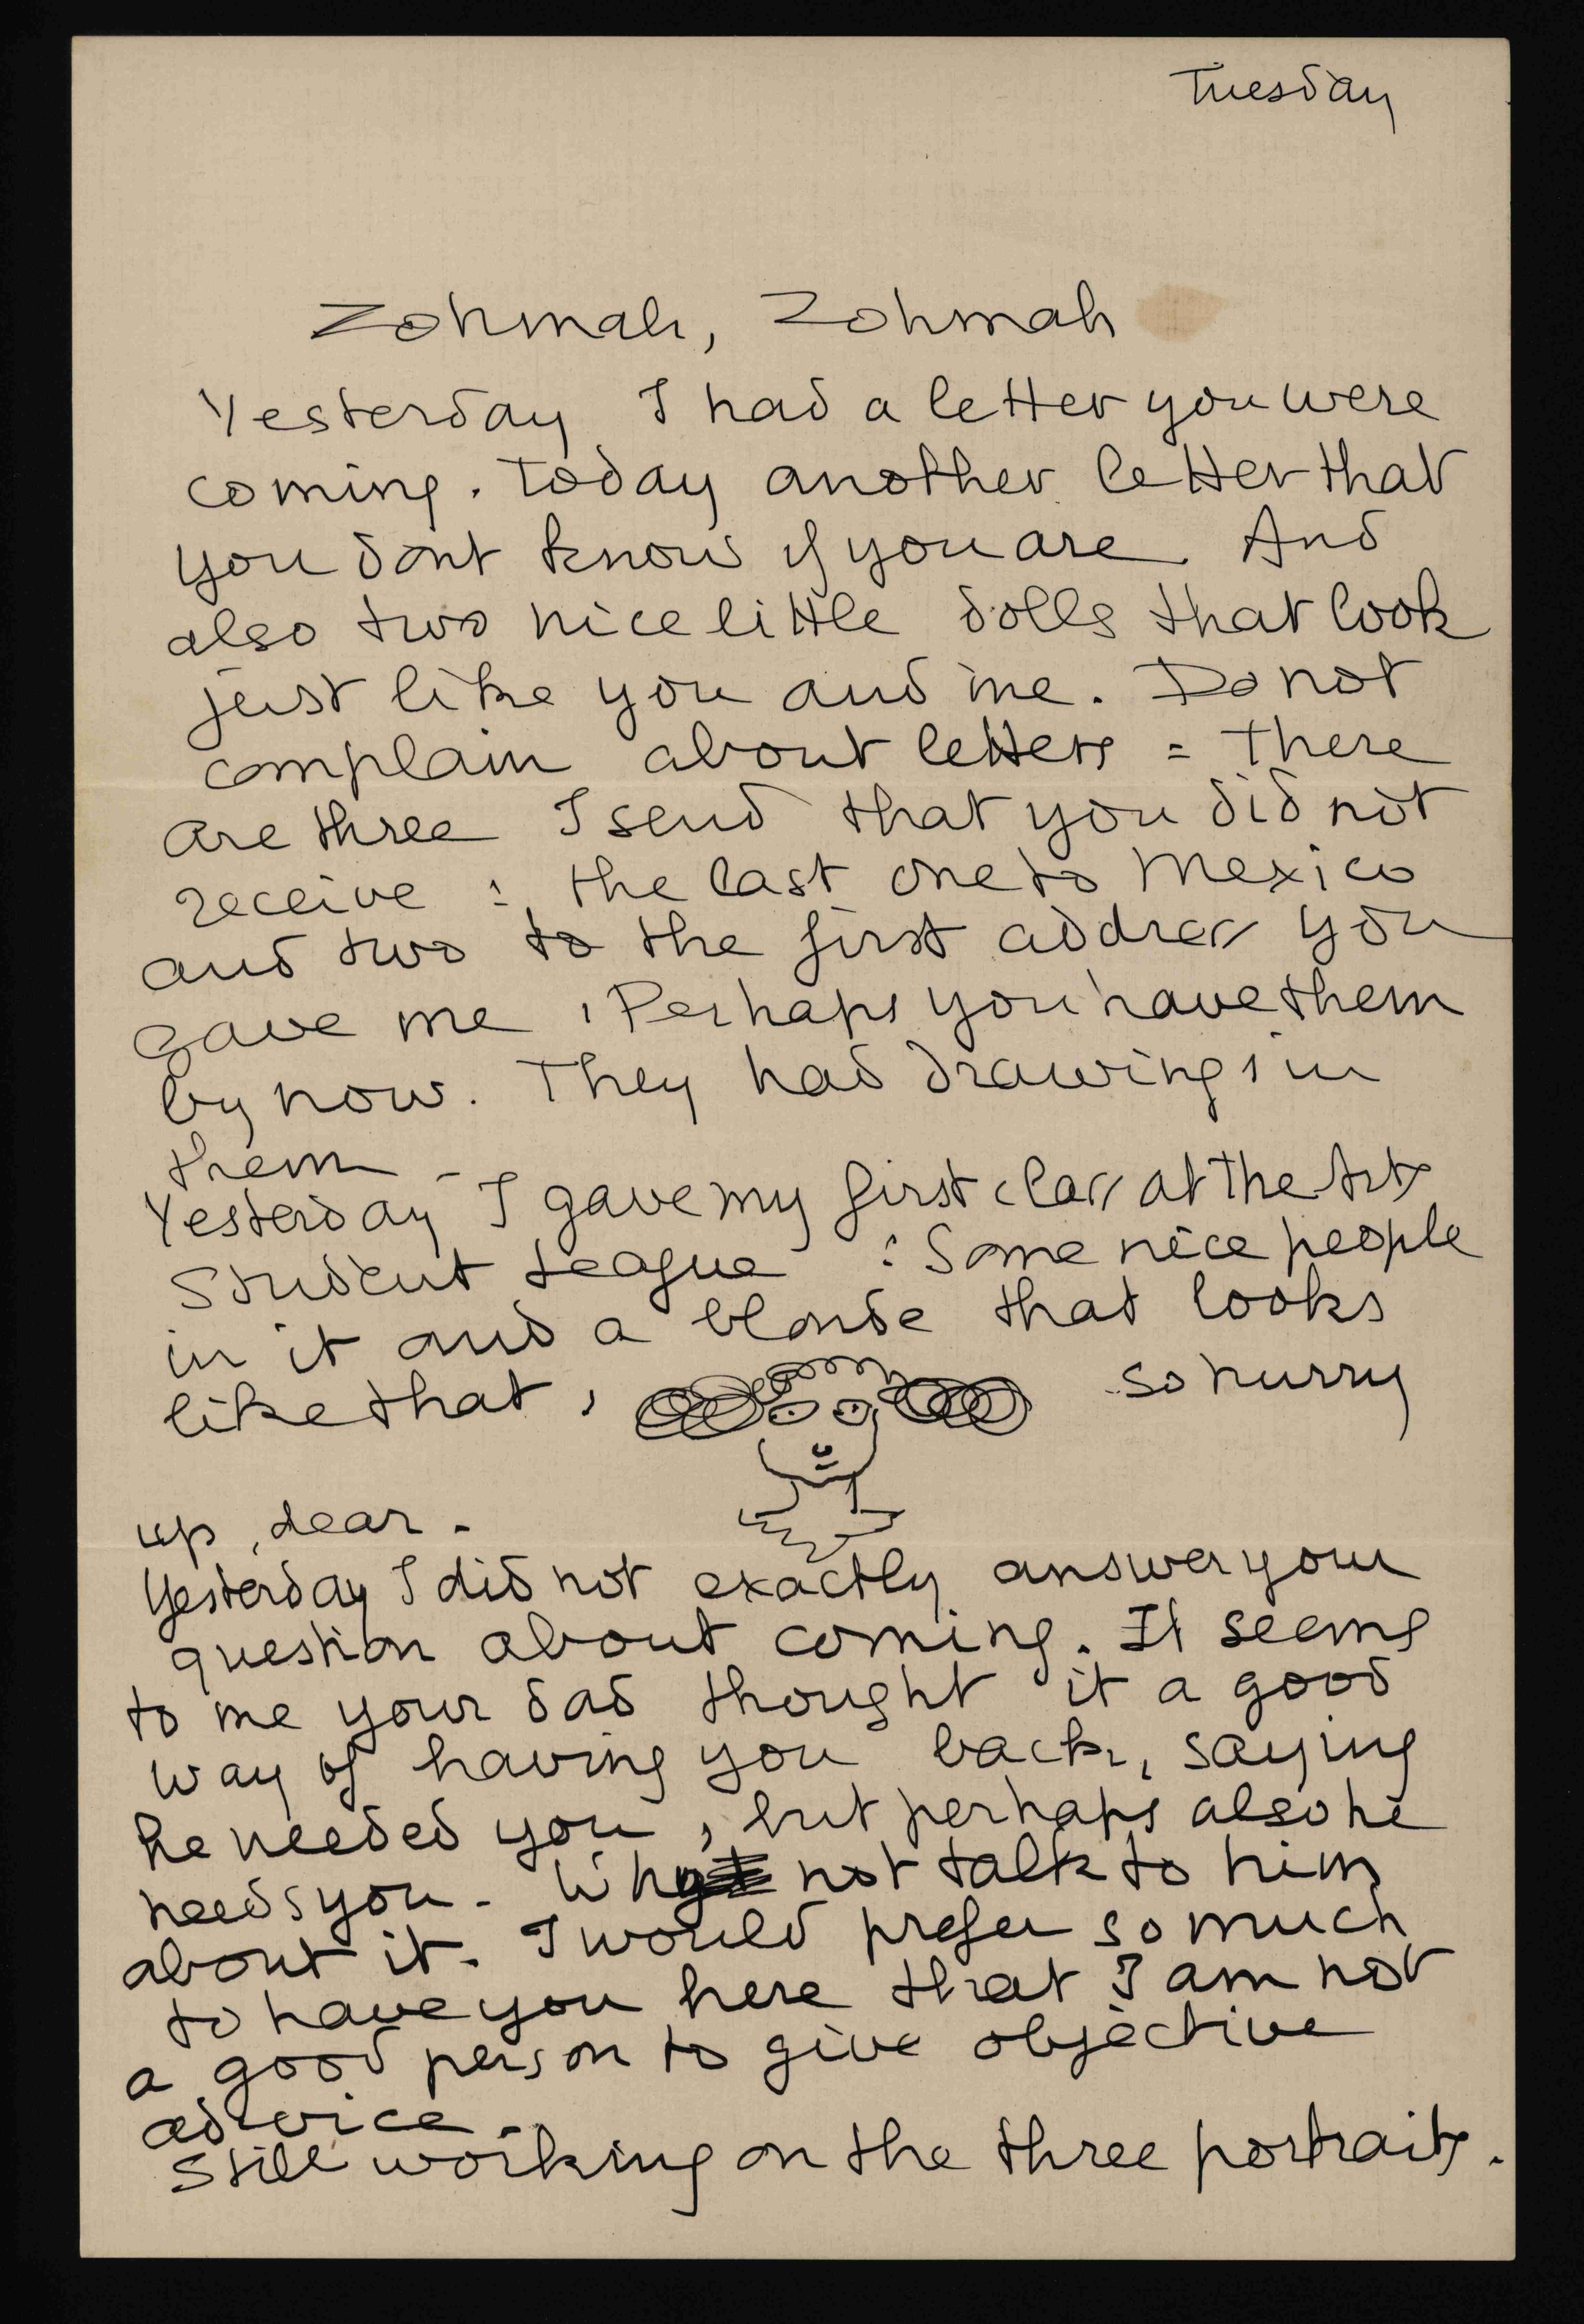 Tuesday
Zohmah, Zohmah
Yesterday I had a letter you were
coming. Today another letter that
you dont know if you are. And
also two nice little dolls that look
just like you and me. Do not
complain about letters = There
are three I send that you did not
receive : the last one to Mexico
and two to the first address you
gave me , Perhaps you have them
by now. They had drawings in
them -
Yesterday I gave my first class at the Arts
Student League : Some nice people
in it and a blonde that looks
like that , so hurry
up , dear -
Yesterday I did not exactly answer your
question about coming. It seems
to me your dad thought it a good
way of having you back, saying
he needed you , but perhaps also he
needs you - Why not talk to him
about it. I would prefer so much
to have you here that I am not
a good person to give objective
advice -
Still working on the three portraits.